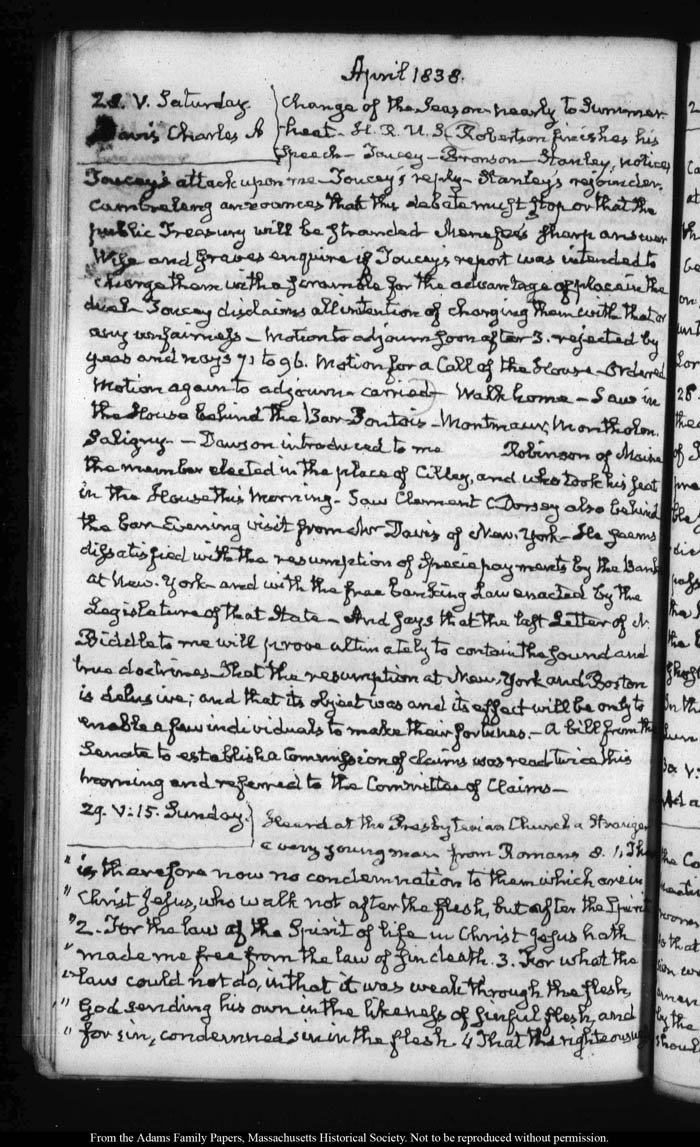 April 1838.
28. V. Saturday. Change of the Season nearly to Summer
Davis Charles A heat. H. R. U. S. Robertson finishes his
Speech — Toucey — Bronson — Stanley, notices
Toucey's attack upon me — Toucey's reply — Stanley's rejoinder.
Cambreleng announces that this debate must stop or that the
public Treasury will be stranded Menefee's sharp answer
Wise and Graves enquire if Toucey's report was intended to
charge them with a scramble for the advantage of place in the
duel — Toucey disclaims all intention of charging them with that or
any unfairness — Motion to adjourn soon after 3. rejected by
yeas and nays 71 to 96. Motion for a Call of the House — Ordered
Motion again to adjourn — carried — Walk home — Saw in
the House behind the Bar Pontois — Montmaur, Montholon.
Saligny. — Dawson introduced to me Robinson of Maine
the member elected in the place of Cilley, and who took his seat
in the House this Morning — Saw Clement Dorsey also behind
the bar — Evening visit from Mr Davis of New-York — He seems
dissatisfied with the resumption of Specie payments by the Banks
at New-York — and with the free banking Law enacted by the
Legislature of that State — And says that the last Letter of N.
Biddle to me will prove ultimately to contain the sound and
true doctrines — That the resumption at New-York and Boston
is delusive; and that its object was and its effect will be only to
enable a few individuals to make their fortunes. — A bill from the
Senate to establish a Commission of claims was read twice this
morning and referred to the Committee of Claims —
29. V:15. Sunday. Heard at the Presbyterian Church a Stranger
a very young man from Romans 8. 1. There
" is therefore now no condemnation to them which are in
" Christ Jesus, who walk not after the flesh, but after the Spirit
" 2. For the law of the Spirit of life in Christ Jesus hath
" made me free from the law of sin death. 3. For what the
" law could not do, in that it was weak through the flesh,
" God sending his own in the likeness of sinful flesh, and
" for sin, condemned sin in the flesh. 4 That the righteousness
From the Adams Family Papers, Massachusetts Historical Society. Not to be reproduced without permission.